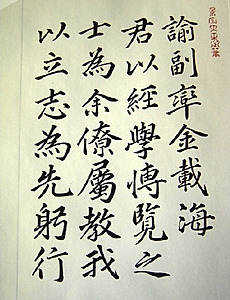 諭副率金載海
君以經學愽覽之
士為余僚屬教我
以立志為先躬行